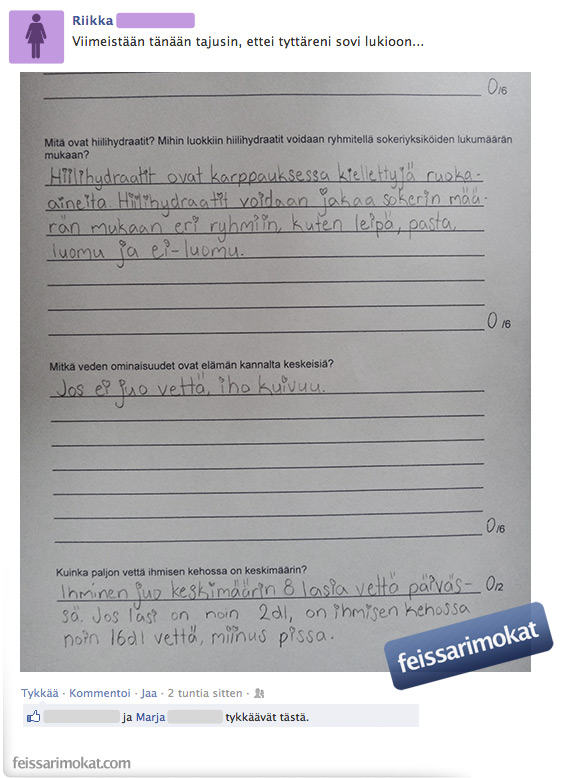 Riikka
Viimeistään tänään tajusin, ettei tyttäreni sovi lukioon...
0/6
Mitä ovat hiilihydraatit? Mihin luokkiin hiilihydraatit voidaan ryhmitellä sokeriyksiköiden lukumäärän
mukaan?
Hiilihydraatit ovat karppauksessa kiellettyjä ruoka-
aineita. Hiilihydraatit voidaan jakaa sokerin mää-
rän mukaan eri ryhmiin, kuten leipä, pasta,
luomu ja ei-luomu.
0/6
Mitkä veden ominaisuudet ovat elämän kannalta keskeisiä?
Jos ei juo vettä, iho kuivuu.
0/6
Kuinka paljon vettä ihmisen kehossa on keskimäärin?
Ihminen juo keskimäärin 8 lasia vettä päiväs- 0/2
sä. Jos lasi on noin 2dl, on ihmisen kehossa
noin 16dl vettä, miinus pissa.
feissarimokat
Tykkää · Kommentoi · Jaa · 2 tuntia sitten ·
ja Marja tykkäävät tästä.
feissarimokat.com